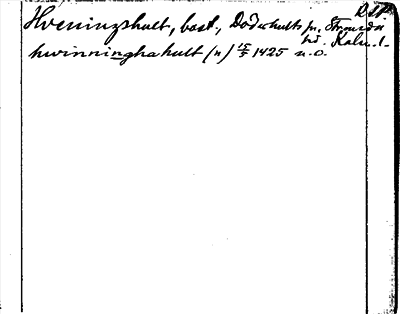 Hveningshult, bost., Döderhults sn, Stranda
hd. Kalm. l.
hwinninghahult (n) 15/5 1425 u. o.